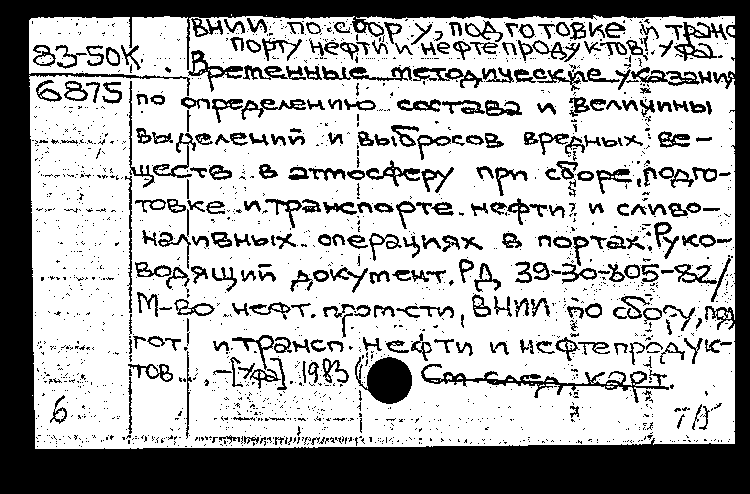 ВНИИ по сбору, подготовке и транс
порту нефти и нефтепродуктов. Уфа.
83-50К
Временные методические указания
6875
по определению состава и величины
выделений и выбросов вредных ве-
ществ в атмосферу при сборе, подго-
товке и транспорте нефти и сливо-
наливных операциях в портах. Руко-
водящий документ. РД 39-30-805-82/
М-во нефт. пром-сти, ВНИИ по сбору, под
гот. и трансп. нефти и нефтепродук-
тов. - [Уфа]. 1983 См. след. карт.
6